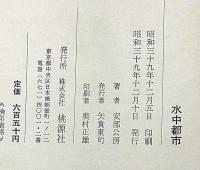 水中都市
昭和三十九年十二月五日 印刷
昭和三十九年十二月十日 発行
著者 安部公房
発行者 矢貴東司
印刷者 奥村正雄
発行所 株式会社 桃源社
東京都中央区日本橋
電話
定価 六百五十円